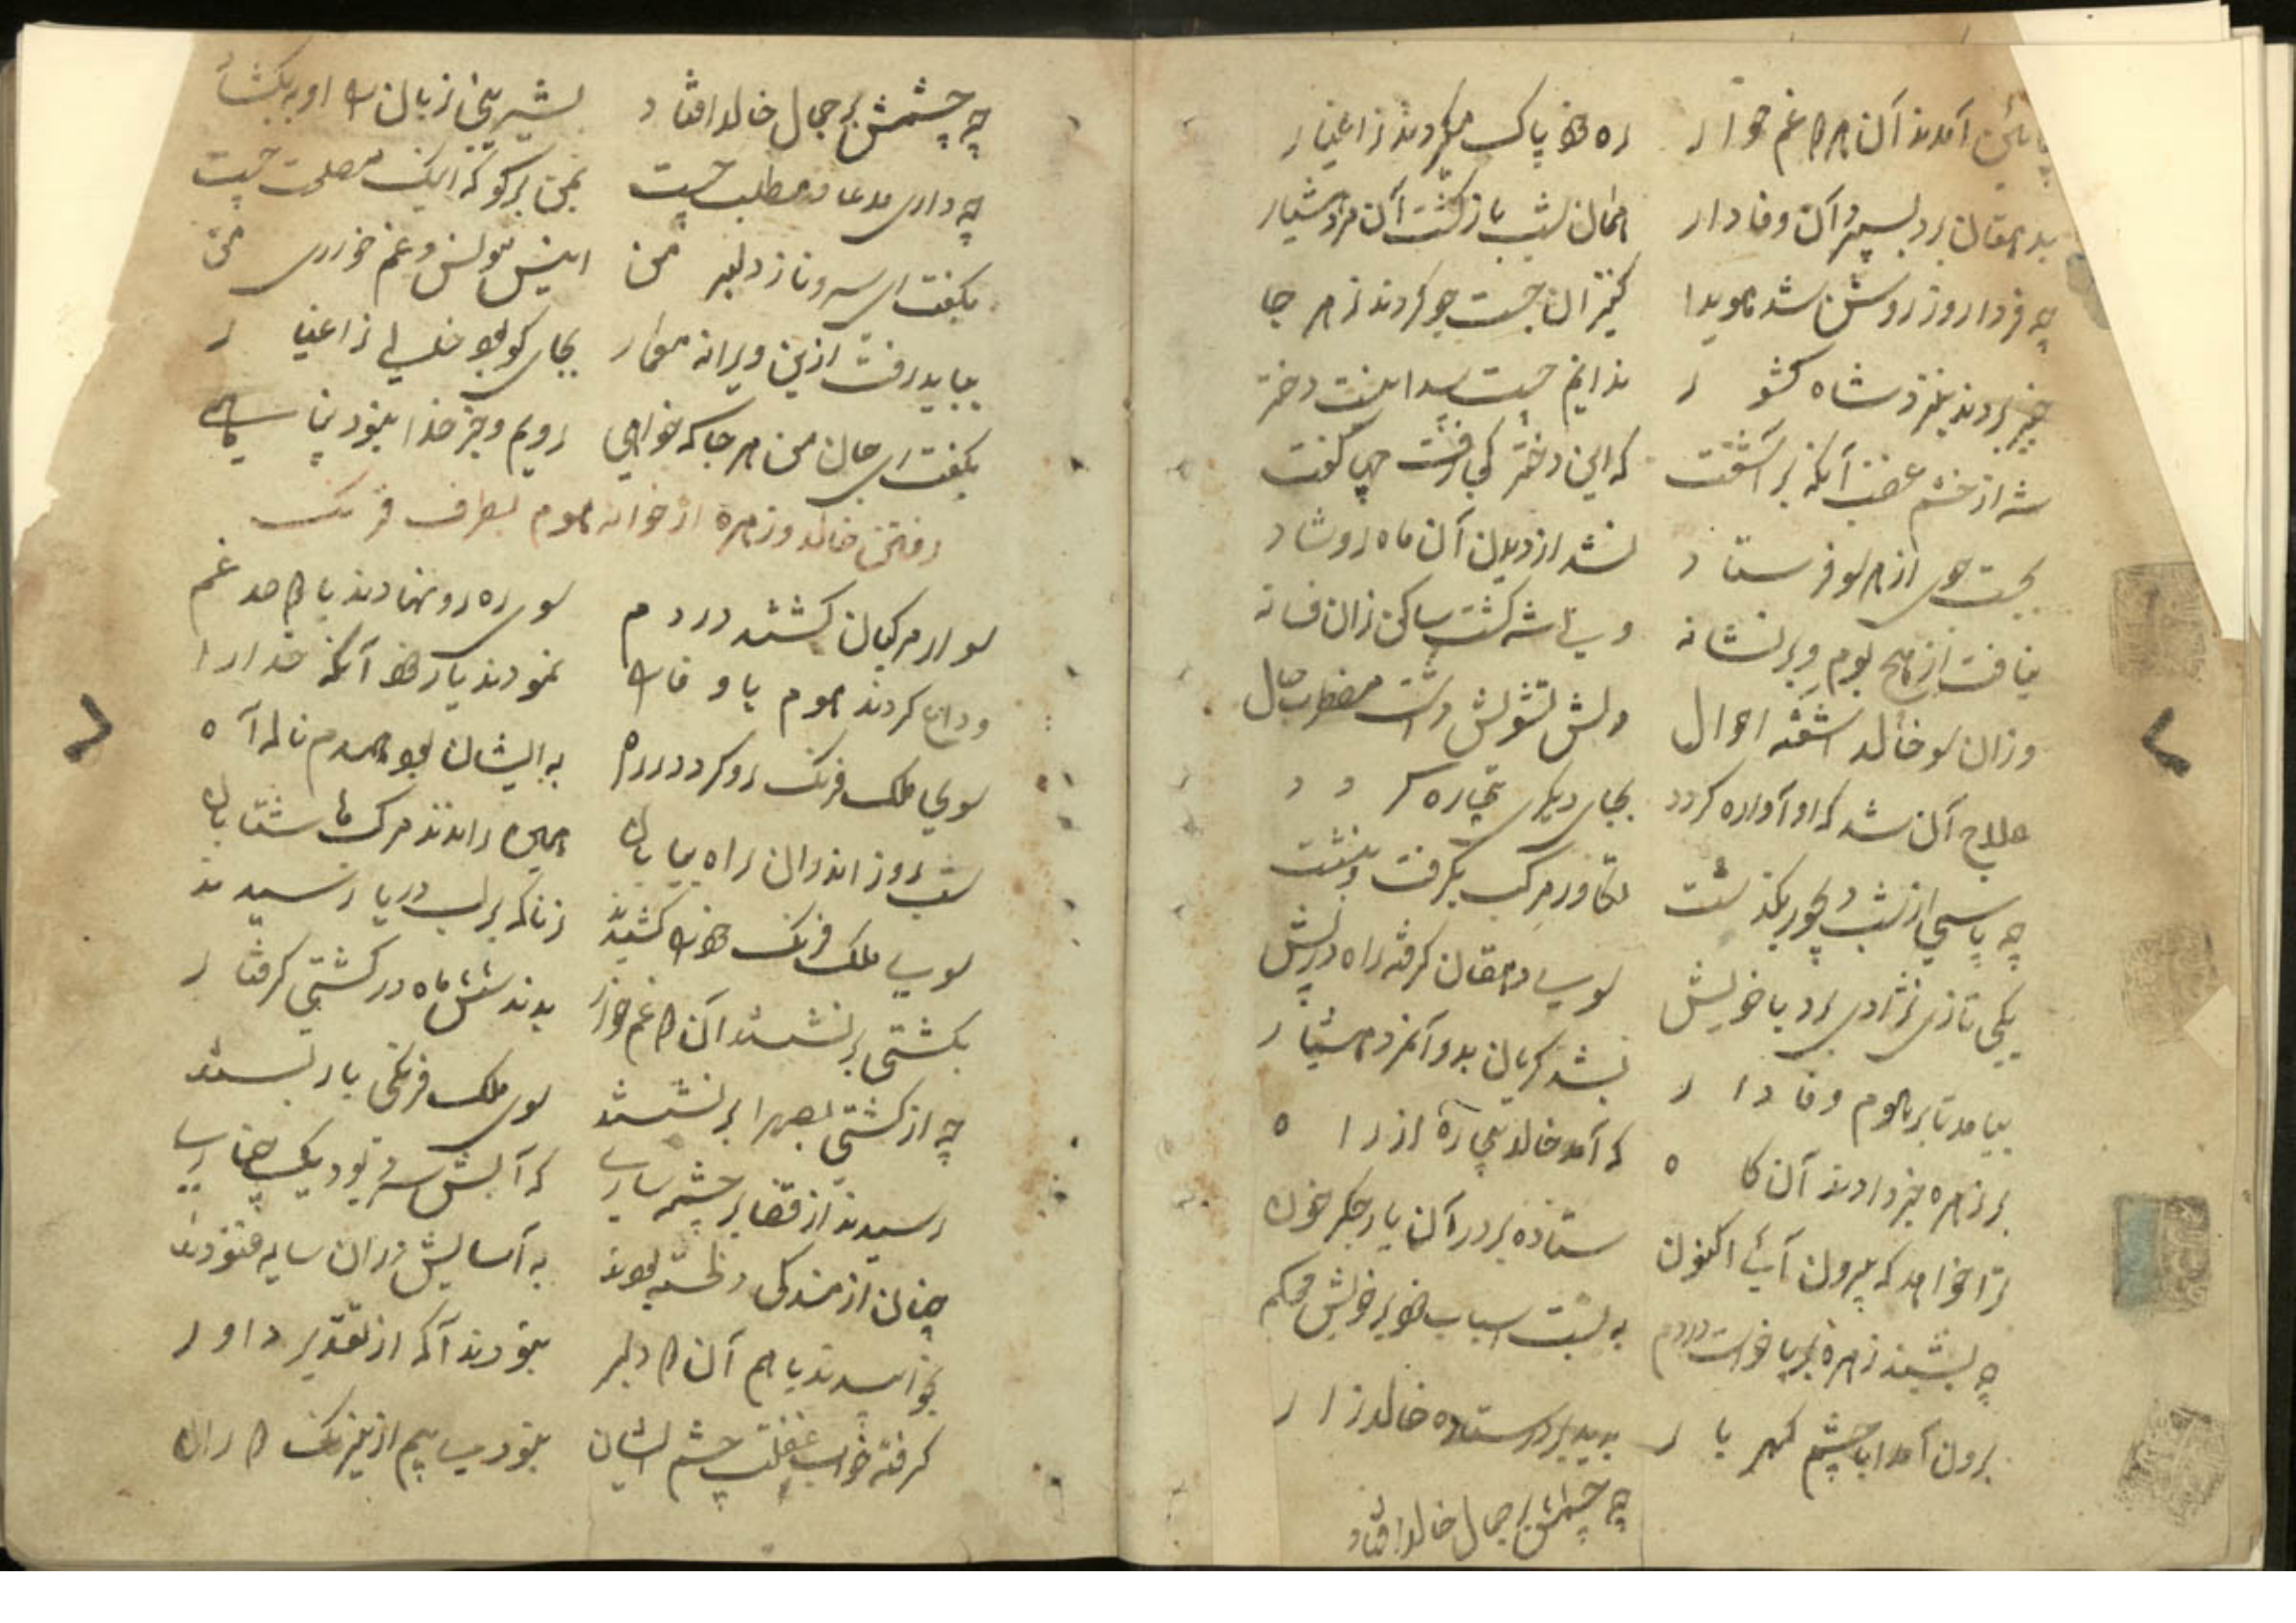 آمدند آن هر دو غم خوار ره خود پاک میکردند ز اغیار
بدهقان بر د بسپرد آن وفادار همان شب بازگشت آن مرد هشیار
چه فردا روز روشن شد هویدا کنیزان جست جو کردند ز هر جا
خبر بردند بنزد شاه کشور ندانم چیست پیدا نیست دختر
شه از خشم غضب آنگه بر آشفت که این دختر کجا رفت چی گفت
بجست جوی از هر سو فرستاد نشد از دیدن آن ماه رو شاد
نیافت از هیچ بوم و بر نشانه ویی شه گشت ساکن زان فسانه
وزان سو خالد آشفته احوال دلش تشویش داشت مضطرب حال
علاج آن شد که او آواره گردد بجای دیگری بیچاره گردد
چه پاسی از شب دیجور بگذشت تکاور مرکب بگرفت بنشست
یکی تازی نژادی برد با خویش سوی دهقان گرفته راه در پیش
بیامد تا بر هوم وفادار بشد گریان بدو آنمرد هشیار
بر زهره خبر دادند آن گاه که آمد خالد بیچاره از راه
ترا خواهد که بیرون آئی اکنون ستاده بر در آن یار جگر خون
چه بشنید زهره بر پا خواست در دم به بست اسباب خود بر خویش محکم
برون آمد ابا چشم گهر بار بدید بر در ستاده خالد زار
چه چشمش بر جمال خالد افتاد
چه چشمش بر جمال خالد افتاد بشیرینی زبان را او به بگشاد
چه داری مدعا و مطلب چیست بمن برگو که اینک مصلحت چیست
بگفت ای سرو ناز دلبر من انیس مونس و غم خوار من
بباید رفت ازین ویرانه معمار بجای کو بود خالی ز اغیار
بگفت ای جان من هر جا که خواهی رویم و جز خدا نبود پناهی
رفتن خالد و زهره از خوانه هوم بطرف فرنگ
سوار مرکبان گشتند در دم سوی ره رو نهادند با دو صد غم
وداع کردند هوم با وفا را نمودند یاد خود آنگه خدا را
سوی ملک فرنگ رو کرد در راه به ایشان بود همدم ناله آه
شب روز اندران راه بیابان همی راندند مرکب ها شتابان
سوی ملک فرنگ خود را کشیدند زناگه بر لب دریا رسیدند
بکشتی بر نشستند آن دو غم خوار بدند شش ماه در کشتی گرفتار
چه از کشتی بصحرا بر نشستند سوی ملک فرنگی بار بستند
رسیدند از قضا بر چشمه ساری که آبش سرد بود یک چناری
چنان از مندگی دلخسته بودند به آسایش در آن سایه غنودند
بخوابیدند با هم آن دو دلبر نبودند آگه از تقدیر داور
گرفته خواب غفلت چشم ایشان نبود بیم از نیرنگ دوران